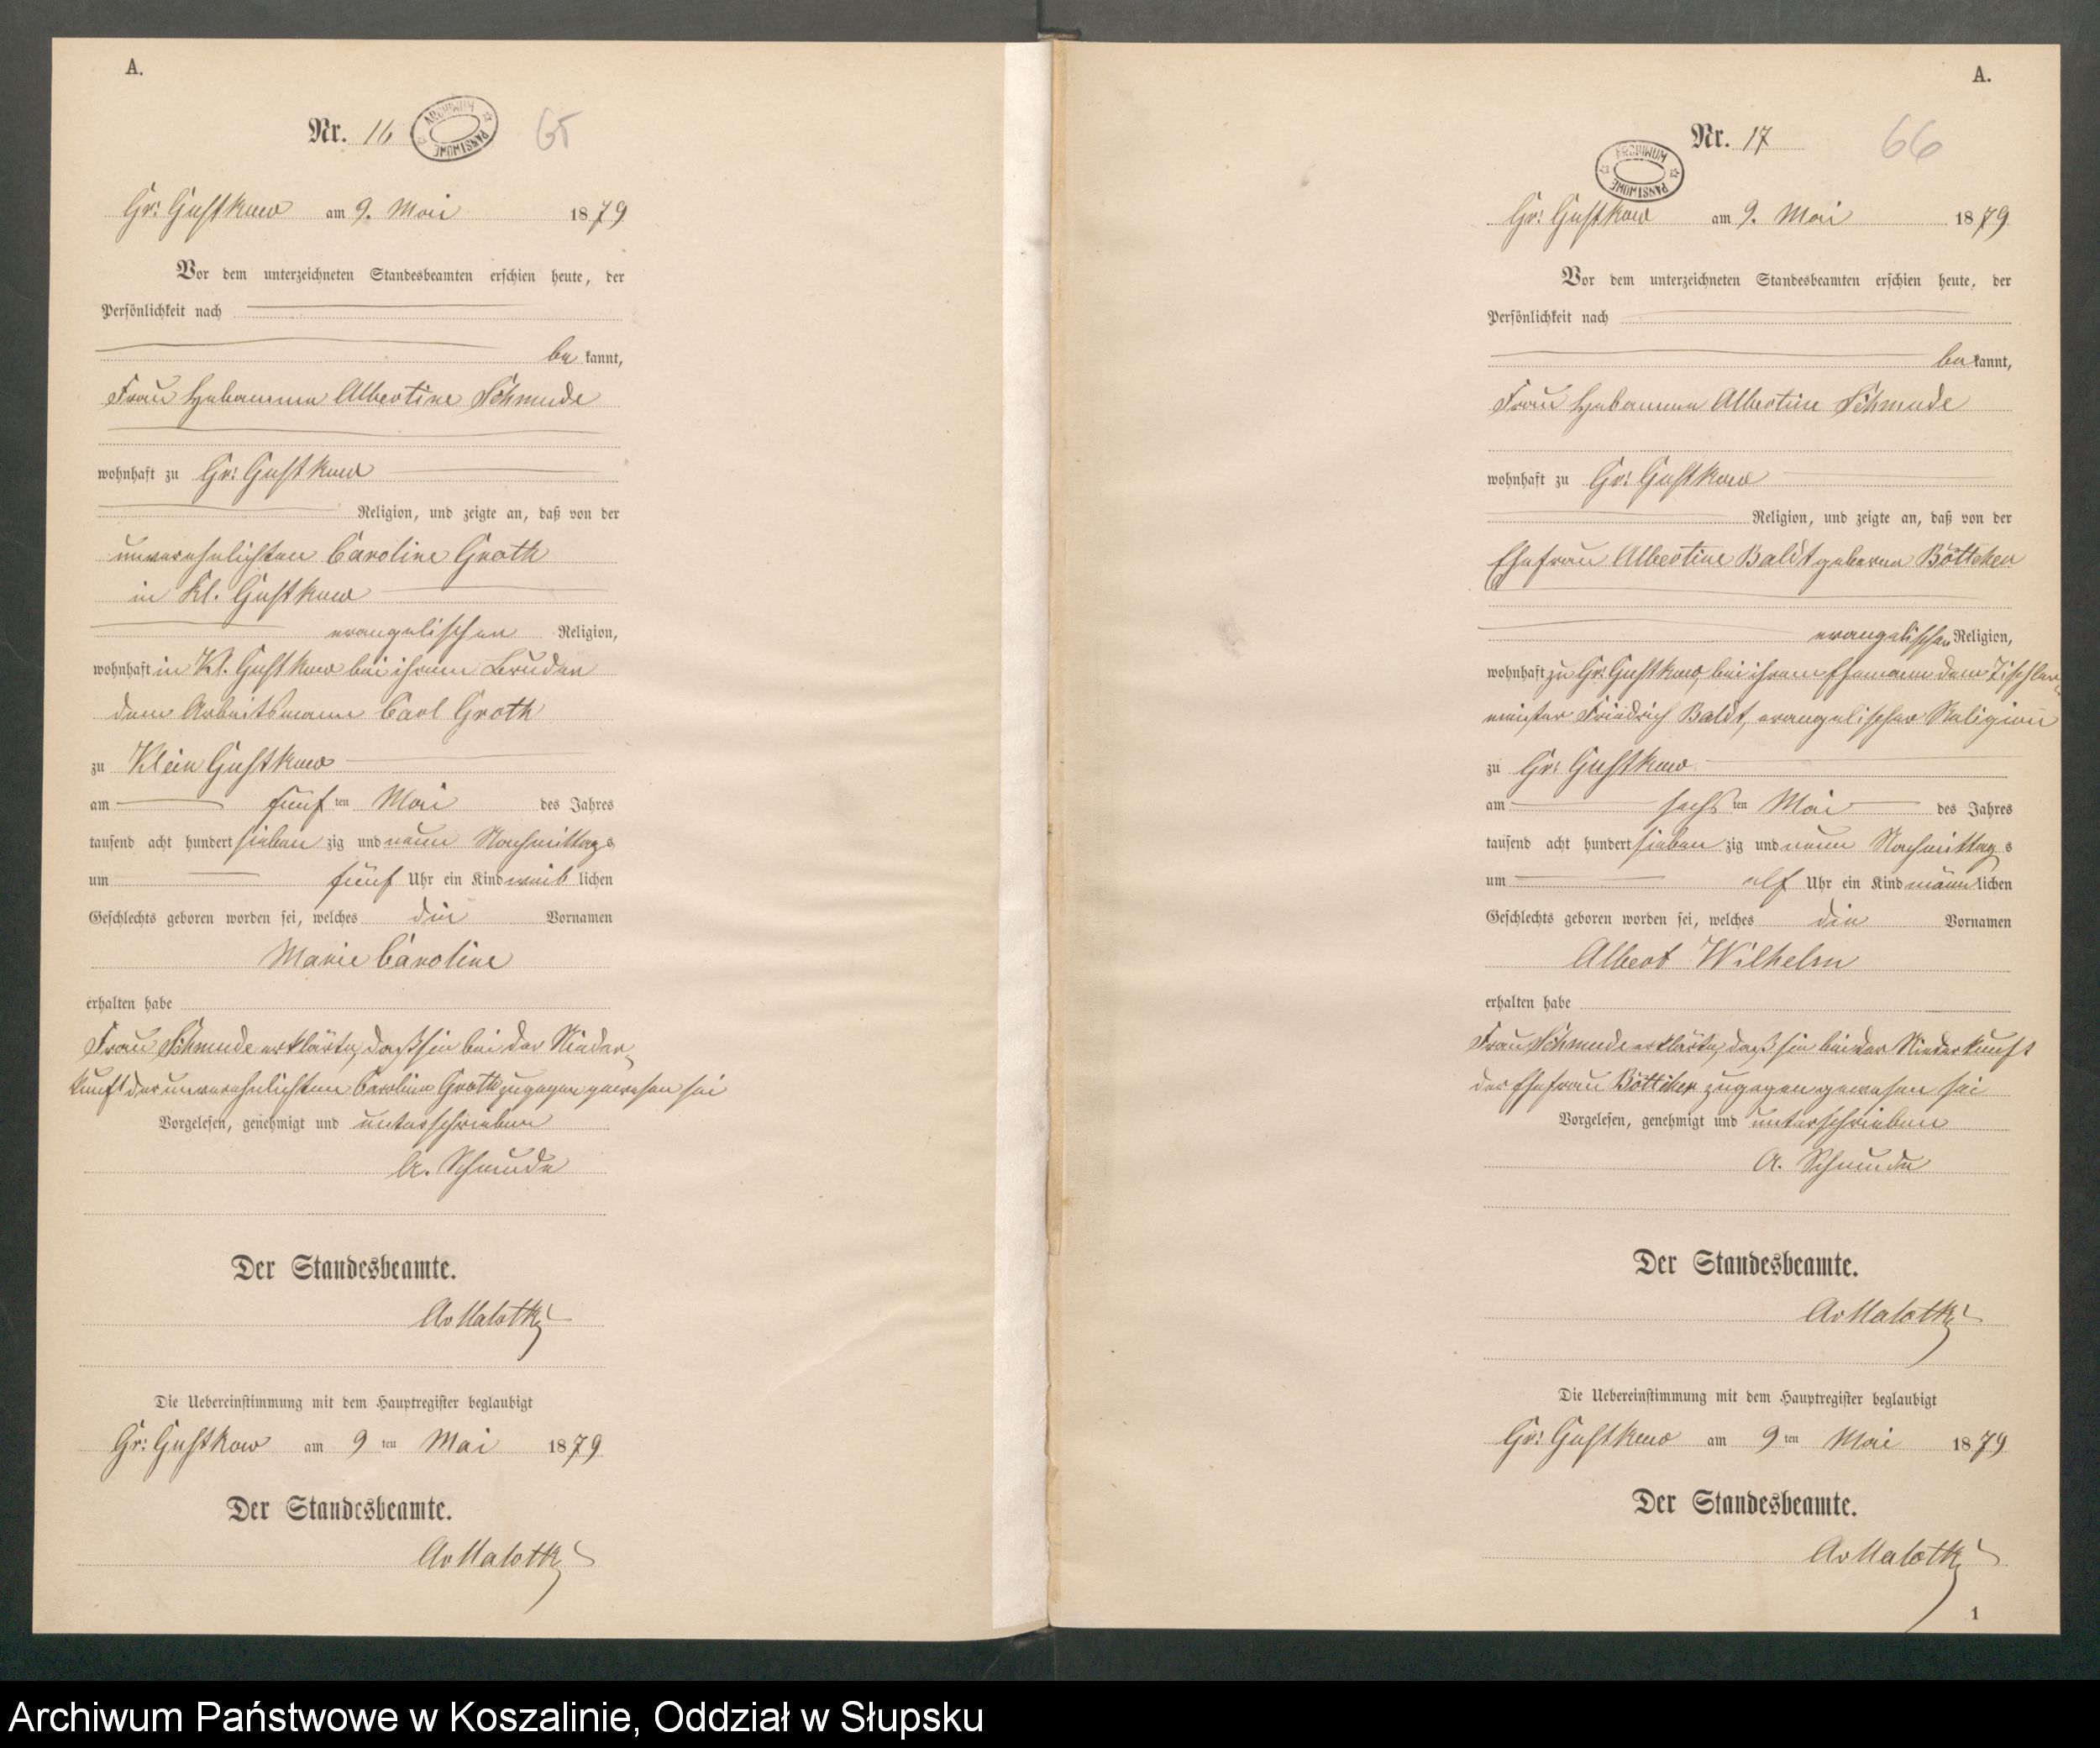 A.
Nr. 16
ARCHIWUM PAŃSTWOWE
65
Gr: Gustkow am 9. Mai 1879
Vor dem unterzeichneten Standesbeamten erschien heute, der
Persönlichkeit nach
be kannt,
Frau Hebamme Albertine Schmude
wohnhaft zu Gr: Gustkow
Religion, und zeigte an, daß von der
unverehelichten Caroline Groth
in Kl. Gustkow
evangelischen Religion,
wohnhaft in Kl. Gustkow bei ihrem Bruder
dem Arbeitsmann Carl Groth
zu Klein Gustkow
am fünf ten Mai des Jahres
tausend acht hundert sieben zig und neun Nachmittags
um fünf Uhr ein Kind weib lichen
Geschlechts geboren worden sei, welches die Vornamen
Marie Caroline
erhalten habe
Frau Schmude erklärte, daß sie bei der Nieder-
kunft der unverehelichten Caroline Groth zugegen gewesen sei
Vorgelesen, genehmigt und unterschrieben
A. Schmude
Der Standesbeamte.
AvMalottki
Die Uebereinstimmung mit dem Hauptregister beglaubigt
Gr: Gustkow am 9 ten Mai 1879
Der Standesbeamte.
AvMalottki
A.
Nr. 17
ARCHIWUM PAŃSTWOWE
66
Gr: Gustkow am 9. Mai 1879
Vor dem unterzeichneten Standesbeamten erschien heute, der
Persönlichkeit nach
be kannt,
Frau Hebamme Albertine Schmude
wohnhaft zu Gr: Gustkow
Religion, und zeigte an, daß von der
Ehefrau Albertine Baldt geborne Böttcher
evangelischer Religion,
wohnhaft zu Gr: Gustkow, bei ihrem Ehemann dem Tischler-
meister Friedrich Baldt, evangelischer Religion
zu Gr: Gustkow
am sechs ten Mai des Jahres
tausend acht hundert sieben zig und neun Nachmittag s
um elf Uhr ein Kind männ lichen
Geschlechts geboren worden sei, welches die Vornamen
Albert Wilhelm
erhalten habe
Frau Schmude erklärte, daß sie bei der Niederkunft
der Ehefrau Böttcher zugegen gewesen sei
Vorgelesen, genehmigt und unterschrieben
A. Schmude
Der Standesbeamte.
AvMalottki
Die Uebereinstimmung mit dem Hauptregister beglaubigt
Gr: Gustkow am 9 ten Mai 1879
Der Standesbeamte.
AvMalottki
1
Archiwum Państwowe w Koszalinie, Oddział w Słupsku